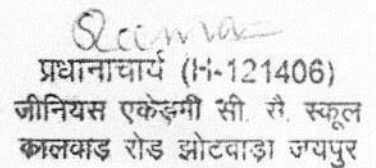 प्रधानाचार्य (H-121406)
जीनियस एकेडमी सी. सै. स्कूल
कालवाड रोड झोटवाड़ा जयपुर